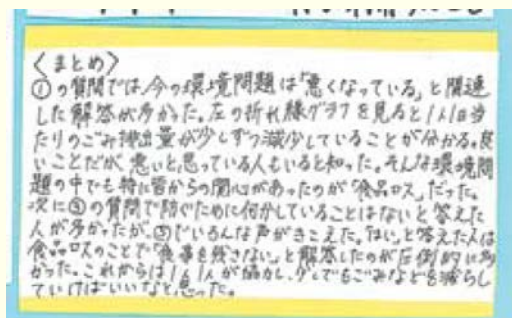 〈まとめ〉
①の質問では、今の環境問題は「悪くなっている」と関連
した解答が多かった。左の折れ線グラフを見ると1人1日当
たりのごみ排出量が少しずつ減少していることが分かる。良
いことだが、悪いと思っている人もいると知った。そんな環境問
題の中でも特に皆からの関心があったのが「食品ロス」だった。
次に④の質問で防ぐために何かしていることはないと答えた
人が多かったが、⑤でいろんな声がきこえた。「はい」と答えた人は
食品ロスのことで「食事を残さない」と解答したのが圧倒的に多
かった。これからは1人1人が協力し、少しでもごみなどを減らし
ていけばいいなと思った。